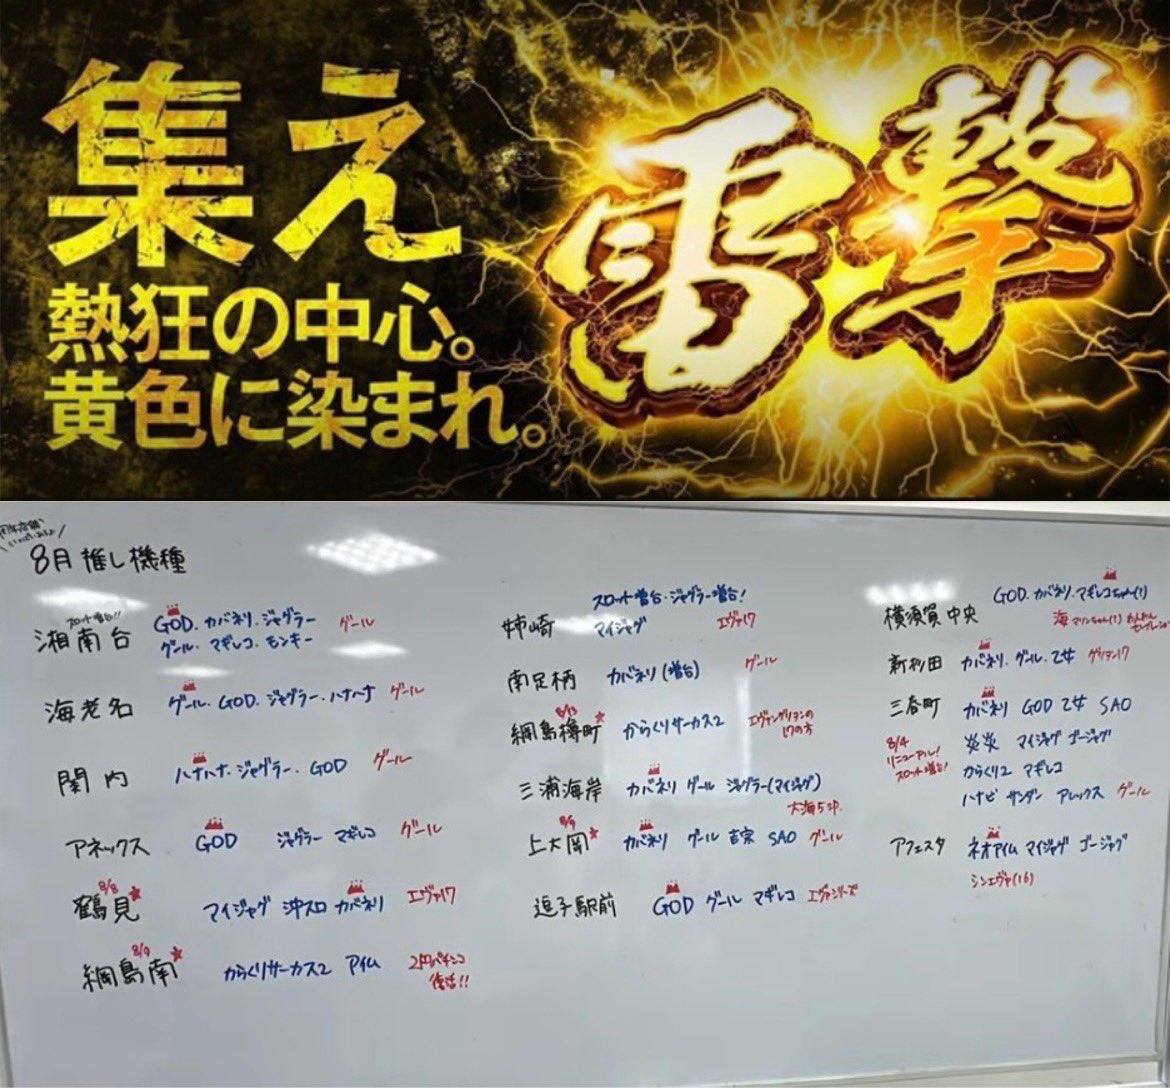 集え
雷撃
熱狂の中心。
黄色に染まれ。
8月推し機種
スロット増台!!
湘南台
GOD. カバネリ. ジャグラー
グール. マギレコ. モンキー
グール
海老名
グール. GOD. ジャグラー. ハナハナ
グール
関内
ハナハナ. ジャグラー. GOD
グール
アネックス
GOD ジャグラー マギレコ
グール
8/8
鶴見
マイジャグ 沖スロ カバネリ
エヴァ17
8/9
綱島南
からくりサーカス2 アイム
2円パチンコ
復活!!
スロット増台. ジャグラー増台!
姉崎
マイジャグ
エヴァ17
南足柄
カバネリ(増台)
グール
8/13
綱島樽町
からくりサーカス2
エヴァンゲリオンの
17の方
三浦海岸
カバネリ グール ジャグラー(マイジャグ)
大海5沖.
8/9
上大岡
カバネリ グール 吉宗 SAO
グール
逗子駅前
GOD グール マギレコ
エヴァシリーズ
横須賀中央
GOD. カバネリ. マギレコちゃん(1)
海マリンちゃん(1)
新杉田
カバネリ. グール. 乙女
ゲリオン17
三春町
カバネリ GOD 乙女 SAO
8/4
リニューアル!
スロット増台!
炎炎 マイジャグ ゴージャグ
からくり2 マギレコ
ハナビ サンダー アレックス
グール
アフェスタ
ネオアイム マイジャグ ゴージャグ
シンエヴァ(16)